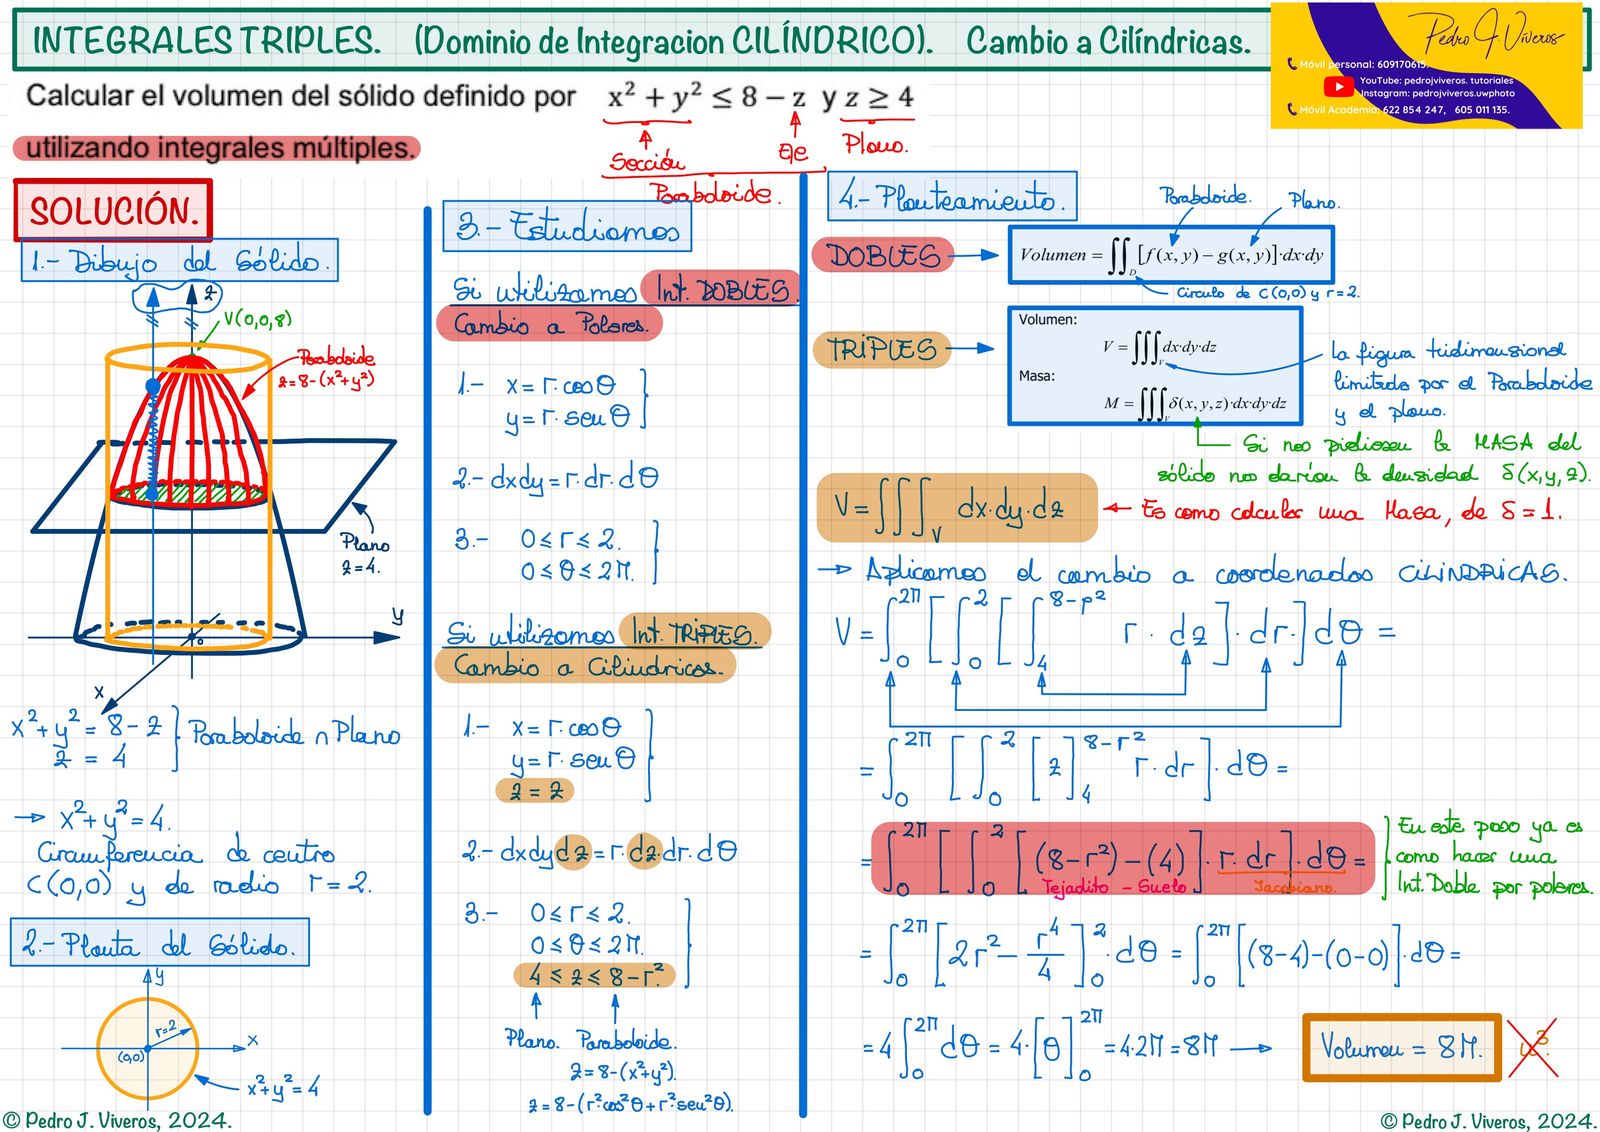 INTEGRALES TRIPLES. (Dominio de Integracion CILÍNDRICO). Cambio a Cilíndricas.
Pedro J Viveros
Móvil personal: 609170615.
YouTube: pedrojviveros. tutoriales
Instagram: pedrojviveros.uwphoto
Móvil Academia: 622 854 247, 605 011 135.
Calcular el volumen del sólido definido por x² + y² ≤ 8 − z y z ≥ 4
utilizando integrales múltiples.
Sección
Eje
Plano.
Paraboloide.
SOLUCIÓN.
1.- Dibujo del Sólido.
z
V(0,0,8)
Paraboloide
z=8-(x²+y²)
Plano
z=4.
y
0
x
x²+y² = 8-z
z = 4
} Paraboloide ∩ Plano
→ x²+y²=4.
Circunferencia de centro
C(0,0) y de radio r=2.
2.- Planta del Sólido.
y
r=2
x
(0,0)
x²+y²=4
3.- Estudiamos
Si utilizamos Int. DOBLES.
Cambio a Polares.
1.- x=r.cosθ
y=r.senθ
2.- dxdy=r.dr.dθ
3.- 0≤r≤2.
0≤θ≤2π.
Si utilizamos Int. TRIPLES.
Cambio a Cilíndricas.
1.- x=r.cosθ
y=r.senθ
z=z
2.- dxdydz=r.dz.dr.dθ
3.- 0≤r≤2.
0≤θ≤2π.
4≤z≤8-r².
Plano. Paraboloide.
z=8-(x²+y²).
z=8-(r²cos²θ+r²sen²θ).
4.- Planteamiento.
Paraboloide. Plano.
DOBLES → Volumen = ∬_D [f(x,y) − g(x,y)]·dx·dy
Círculo de C(0,0) y r=2.
TRIPLES →
Volumen:
V = ∭_V dx·dy·dz
Masa:
M = ∭_V δ(x,y,z)·dx·dy·dz
La figura tridimensional
limitada por el Paraboloide
y el plano.
Si nos pidiesen la MASA del
sólido nos darían la densidad δ(x,y,z).
V=∭_V dx.dy.dz ← Es como calcular una Masa, de δ=1.
→ Aplicamos el cambio a coordenadas CILÍNDRICAS.
V=∫₀^2π [∫₀^2 [∫₄^8-ρ² r. dz]. dr.] dθ =
=∫₀^2π [∫₀^2 [z]₄^8-r² r.dr]. dθ =
=∫₀^2π [∫₀^2 [(8-r²)-(4)]. r.dr]. dθ =
Tejadito - Suelo Jacobiano.
En este paso ya es
como hacer una
Int. Doble por polares.
=∫₀^2π [2r²- r⁴/4]₀^2. dθ = ∫₀^2π [(8-4)-(0-0)].dθ =
=4∫₀^2π dθ = 4.[θ]₀^2π =4.2π=8π → Volumen = 8π. u³.
© Pedro J. Viveros, 2024.
© Pedro J. Viveros, 2024.